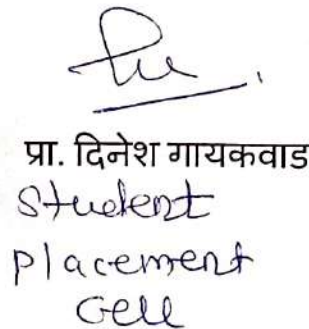 प्रा. दिनेश गायकवाड
Student
placement
Cell